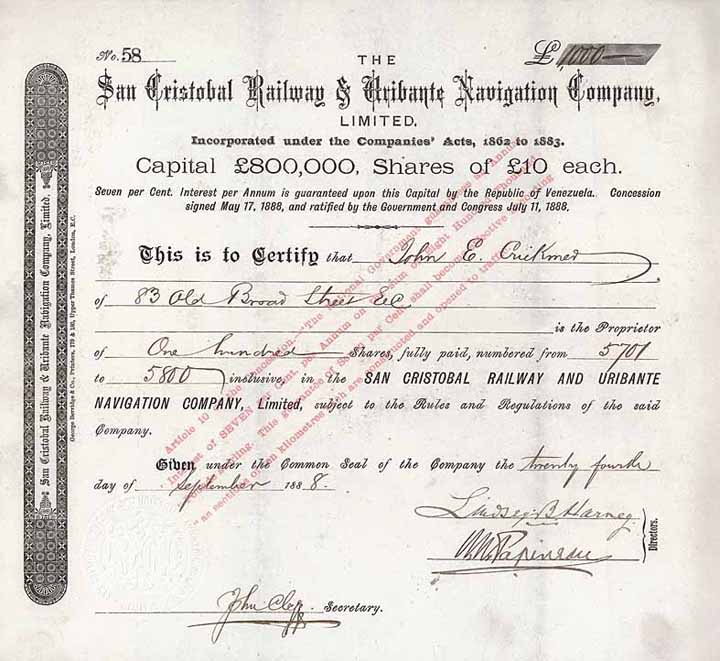 No. 58
£1000
THE
San Cristobal Railway & Uribante Navigation Company,
LIMITED.
Incorporated under the Companies' Acts, 1862 to 1883.
Capital £800,000, Shares of £10 each.
Seven per Cent. Interest per Annum is guaranteed upon this Capital by the Republic of Venezuela. Concession
signed May 17, 1888, and ratified by the Government and Congress July 11, 1888.
This is to Certify that John E. Crikmer
of 83 Old Broad Street EC
is the Proprietor
of One hundred Shares, fully paid, numbered from 5701
to 5800 inclusive, in the SAN CRISTOBAL RAILWAY AND URIBANTE
NAVIGATION COMPANY, Limited, subject to the Rules and Regulations of the said
Company.
Given under the Common Seal of the Company the twenty fourth
day of September 1888.
Directors.
John Secretary.
Article 10 of the Concession.—"The National Government guarantees Annum
Interest of SEVEN per Cent. per Annum on sum of Eight Hundred Thousand
Pounds Sterling. This guarantee of Seven per Cent shall become effective
as sections of ten kilometres are constructed and opened to traffic
San Cristobal Railway & Uribante Navigation Company, Limited.
George Berridge & Co., Printers, 179 & 180, Upper Thames Street, London, E.C.